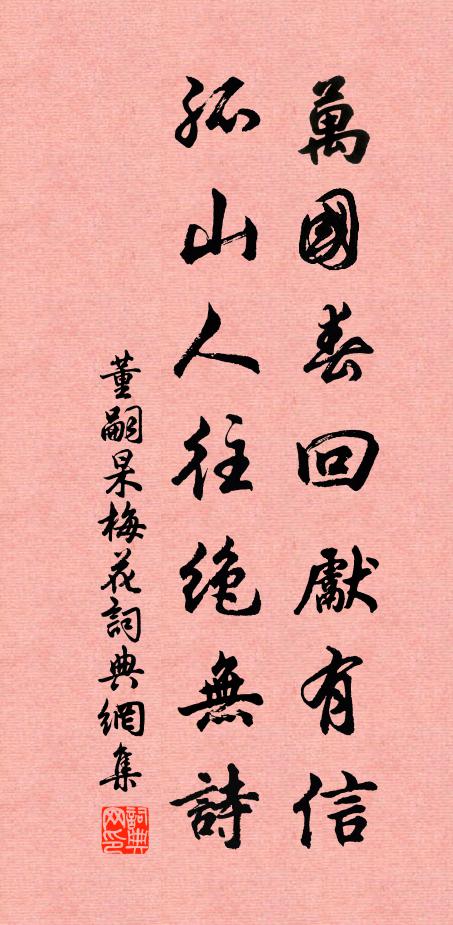 萬國春回獻有信
孤山人往絕無詩
董嗣杲梅花詞典網集
詞典
网印